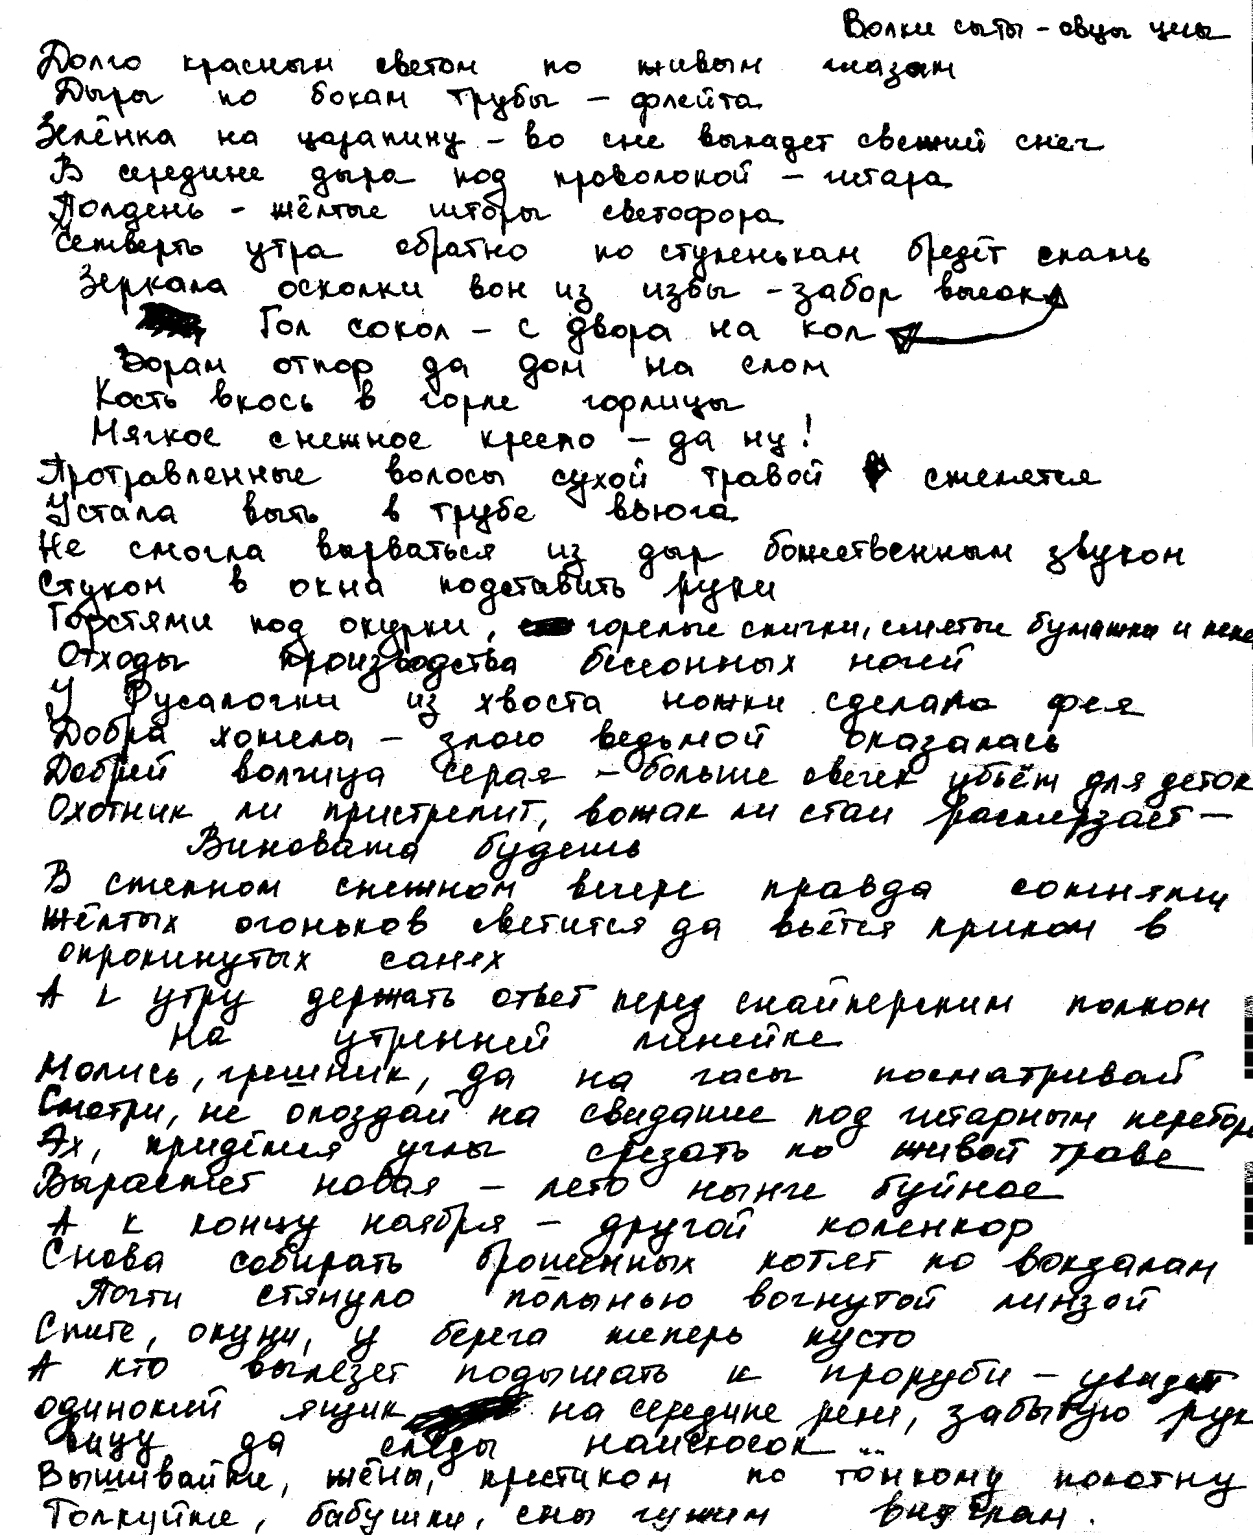 Волки сыты – овцы целы
Долго красным светом по живым глазам
Дыры по бокам трубы – флейта
Зелёнка на царапину – во сне выпадет свежий снег
В середине дыра под проволокой – гитара
Полдень – жёлтые шторы светофора
Четверть утра обратно по ступенькам бредёт спать
Зеркала осколки вон из избы – забор высок
Гол сокол – с двора на кол
Ворам отпор да дом на слом
Кость вкось в горле горлицы
Мягкое снежное кресло – да ну!
Протравленные волосы сухой травой стелются
Устала выть в трубе вьюга
Не смогла вырваться из дыр божественным звуком
Стуком в окна подставить руки
Горстями под окурки, горелые спички, смятые бумажки и
Отходы производства бессонных ночей
У Русалочки из хвоста ножки сделала фея
Добра хотела – злою ведьмой оказалась
Добрей волчица серая – больше овечек убьёт для деток
Охотник ли пристрелит, вожак ли стаи растерзает –
Виновата будешь
В степном снежном вечере правда
жёлтых огоньков светится да вьётся криком в
опрокинутых санях
А к утру держать ответ перед снайперским полком
на утренней линейке
Молись, грешник, да на часы посматривай
Смотри, не опоздай на свидание под гитарным перебор
Ах, придётся углы срезать по живой траве
Вырастет новая – лето нынче буйное
А к концу ноября – другой коленкор
Снова собирать брошенных котят по вокзалам
Почти стянуло полынью вогнутой линзой
Спите, окуни, у берега теперь пусто
А кто вылезет подышать к проруби – увидит
одинокий ящик на середине реки, забытую рука
вицу да следы наискосок...
Вышивайте, жёны, крестиком по тонкому полотну
Толкуйте, бабушки, сны чужим внучкам.